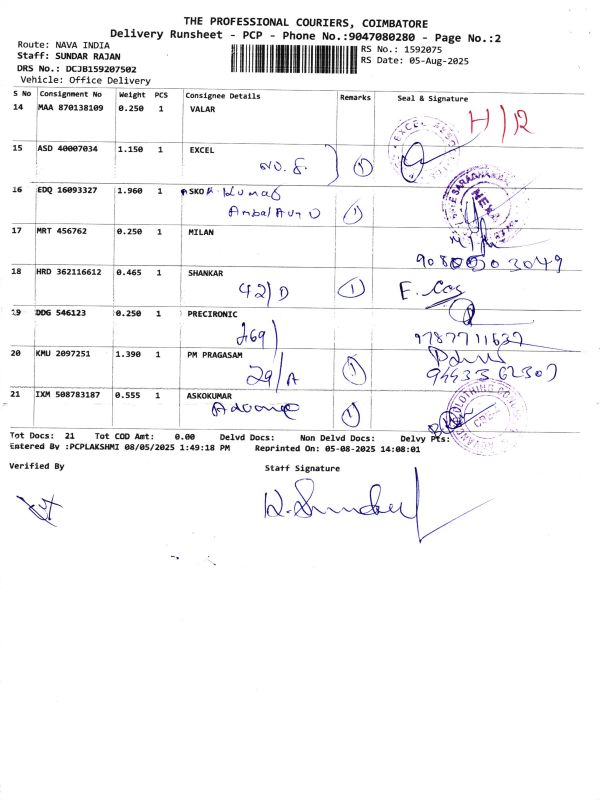 THE PROFESSIONAL COURIERS, COIMBATORE
Delivery Runsheet - PCP - Phone No.:9047080280 - Page No.:2
Route: NAVA INDIA
Staff: SUNDAR RAJAN
DRS No.: DCJB159207502
Vehicle: Office Delivery
RS No.: 1592075
RS Date: 05-Aug-2025
S No Consignment No Weight PCS Consignee Details Remarks Seal & Signature
14 MAA 870138109 0.250 1 VALAR
15 ASD 40007034 1.150 1 EXCEL
NO. 8. 1
16 EDQ 16093327 1.960 1 ASKO
1
17 MRT 456762 0.250 1 MILAN
18 HRD 362116612 0.465 1 SHANKAR
42/D 1
19 DDG 546123 0.250 1 PRECIRONIC
20 KMU 2097251 1.390 1 PM PRAGASAM
29/A 1
21 IXM 508783187 0.555 1 ASKOKUMAR
1
Tot Docs: 21 Tot COD Amt: 0.00 Delvd Docs: Non Delvd Docs: Delvy Pts:
Entered By :PCPLAKSHMI 08/05/2025 1:49:18 PM Reprinted On: 05-08-2025 14:08:01
Verified By Staff Signature